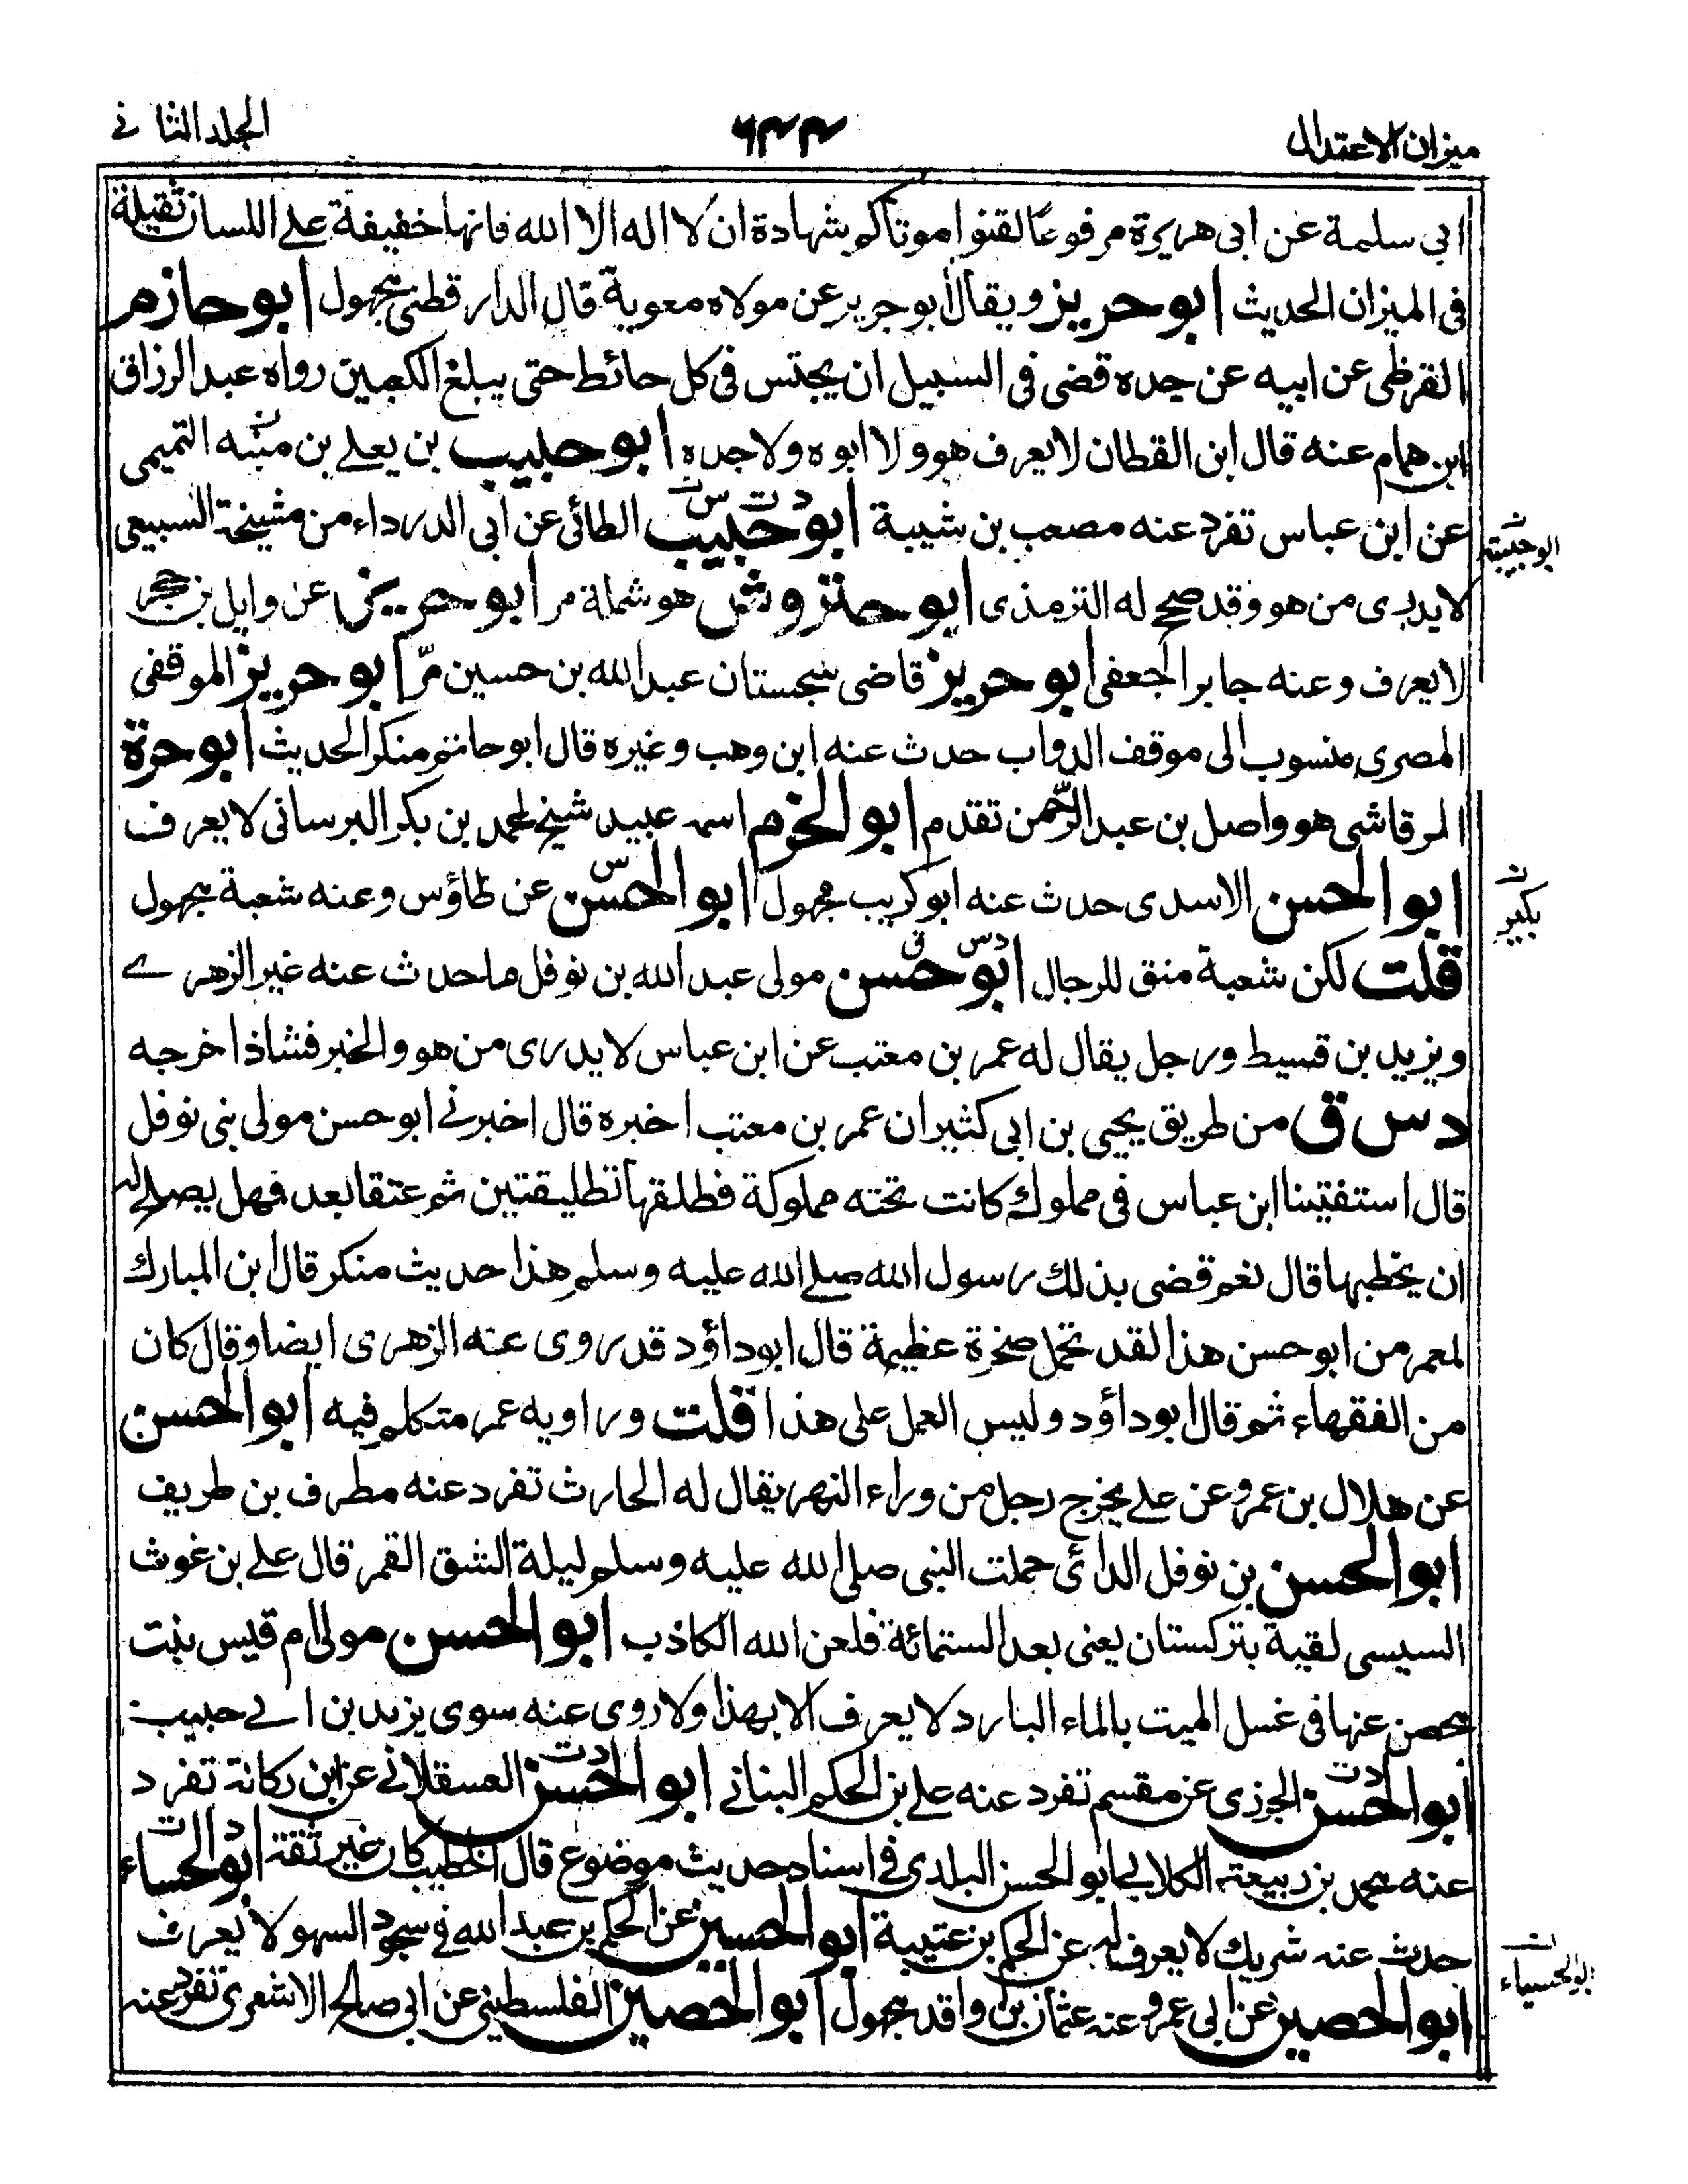 ميزان الاعتدال
الجلد الثاني
ابي سلمة عن ابي هريرة مرفوعا لقنوا موتاكم شهادة ان لا اله الا الله فانها خفيفة على اللسان ثقيلة
في الميزان الحديث ابو حريز ويقال ابو جرير عن مولاه معوية قال الدارقطني مجهول ابو حازم
القرظي عن ابيه عن جده قضى في السبيل ان يحتبس في كل حائط حتى يبلغ الكعبين رواه عبد الرزاق
ابن همام عنه قال ابن القطان لا يعرف هو ولا ابوه ولا جده ابو حبيب بن يعلے بن منبه التميمي
عن ابن عباس تفرد عنه مصعب بن شيبة ابو حبيب الطائي عن ابي الدرداء من مشيخة السبيعي
ابو حبيبة
لا يدرى من هو وقد صحح له الترمذي ابو حتروش هو شملة مر ابو حريز عن وايل بن حجر
لا يعرف وعنه جابر الجعفي ابو حريز قاضي سجستان عبد الله بن حسين مرّ ابو حريز الموقفي
المصري منسوب الى موقف الدواب حدث عنه ابن وهب وغيره قال ابو حاتم منكر الحديث ابو حرة
الرقاشي هو واصل بن عبد الرّحمن تقدم ابو الخزم اسمه عبيد شيخ لمحمد بن بكر البرساني لا يعرف
ابو الحسن الاسدي حدث عنه ابو كريب مجهول ابو الحسن س عن طاؤس وعنه شعبة مجهول
بكير
قلت لكن شعبة منق للرجال ابو حسن دس ق مولى عبد الله بن نوفل ما حدث عنه غير الزهرے
ويزيد بن قسيط ورجل يقال له عمر بن معتب عن ابن عباس لا يدرى من هو والخبر فشاذ اخرجه
د س ق من طريق يحيى بن ابي كثير ان عمر بن معتب اخبره قال اخبرنے ابو حسن مولى بني نوفل
قال استفتينا ابن عباس في مملوك كانت تحته مملوكة فطلقها تطليقتين ثم عتقا بعد فهل يصلح له
ان يخطبها قال نعم قضى بذلك رسول الله صلے الله عليه وسلم هذا حديث منكر قال ابن المبارك
لمعمر من ابو حسن هذا لقد تحمل صخرة عظيمة قال ابو داؤد قد روى عنه الزهري ايضا وقال كان
من الفقهاء ثم قال ابو داؤد وليس العمل على هذا قلت وراويه عمر متكلم فيه ابو الحسن
عن هلال بن عمرو عن علے يخرج رجل من وراء النهر يقال له الحارث تفرد عنه مطرف بن طريف
ابو الحسن بن نوفل الدائ حملت النبي صلى الله عليه وسلم ليلة انشق القمر قال علے بن غوث
السيسي لقيه بتركستان يعني بعد الستمائة فلعن الله الكاذب ابو الحسن مولى ام قيس بنت
محصن عنها في غسل الميت بالماء البارد لا يعرف الا بهذا ولا روى عنه سوى يزيد بن ابے حبيب
ابو الحسن دت الجزري عن مقسم تفرد عنه علے بن الحكم البنانے ابو الحسن دت العسقلانے عن ابن ركانة تفرد
عنه محمد بن ربيعة الكلابے ابو الحسن البلدي في اسناد حديث موضوع قال الخطيب كان غير ثقة ابو الحساء دت
حدث عنه شريك لا يعرف له عن الحكم بن عتيبة ابو الحسين عن الحكم بن عبد الله في سجود السهو لا يعرف
ابو الحسناء
ابو الحصين عن ابي عمرو وعنه عثمان بن واقد مجهول ابو الحصين الفلسطيني عن ابي صالح الاشعري تفرد عنه